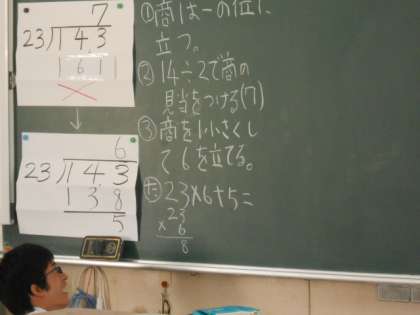 7
23)143
161
↓
6
23)143
138
5
①商は一の位に
立つ。
②14÷2で商の
見当をつける(7)
③商を1小さくし
て6を立てる。
た 23×6+5=
23
×6
8